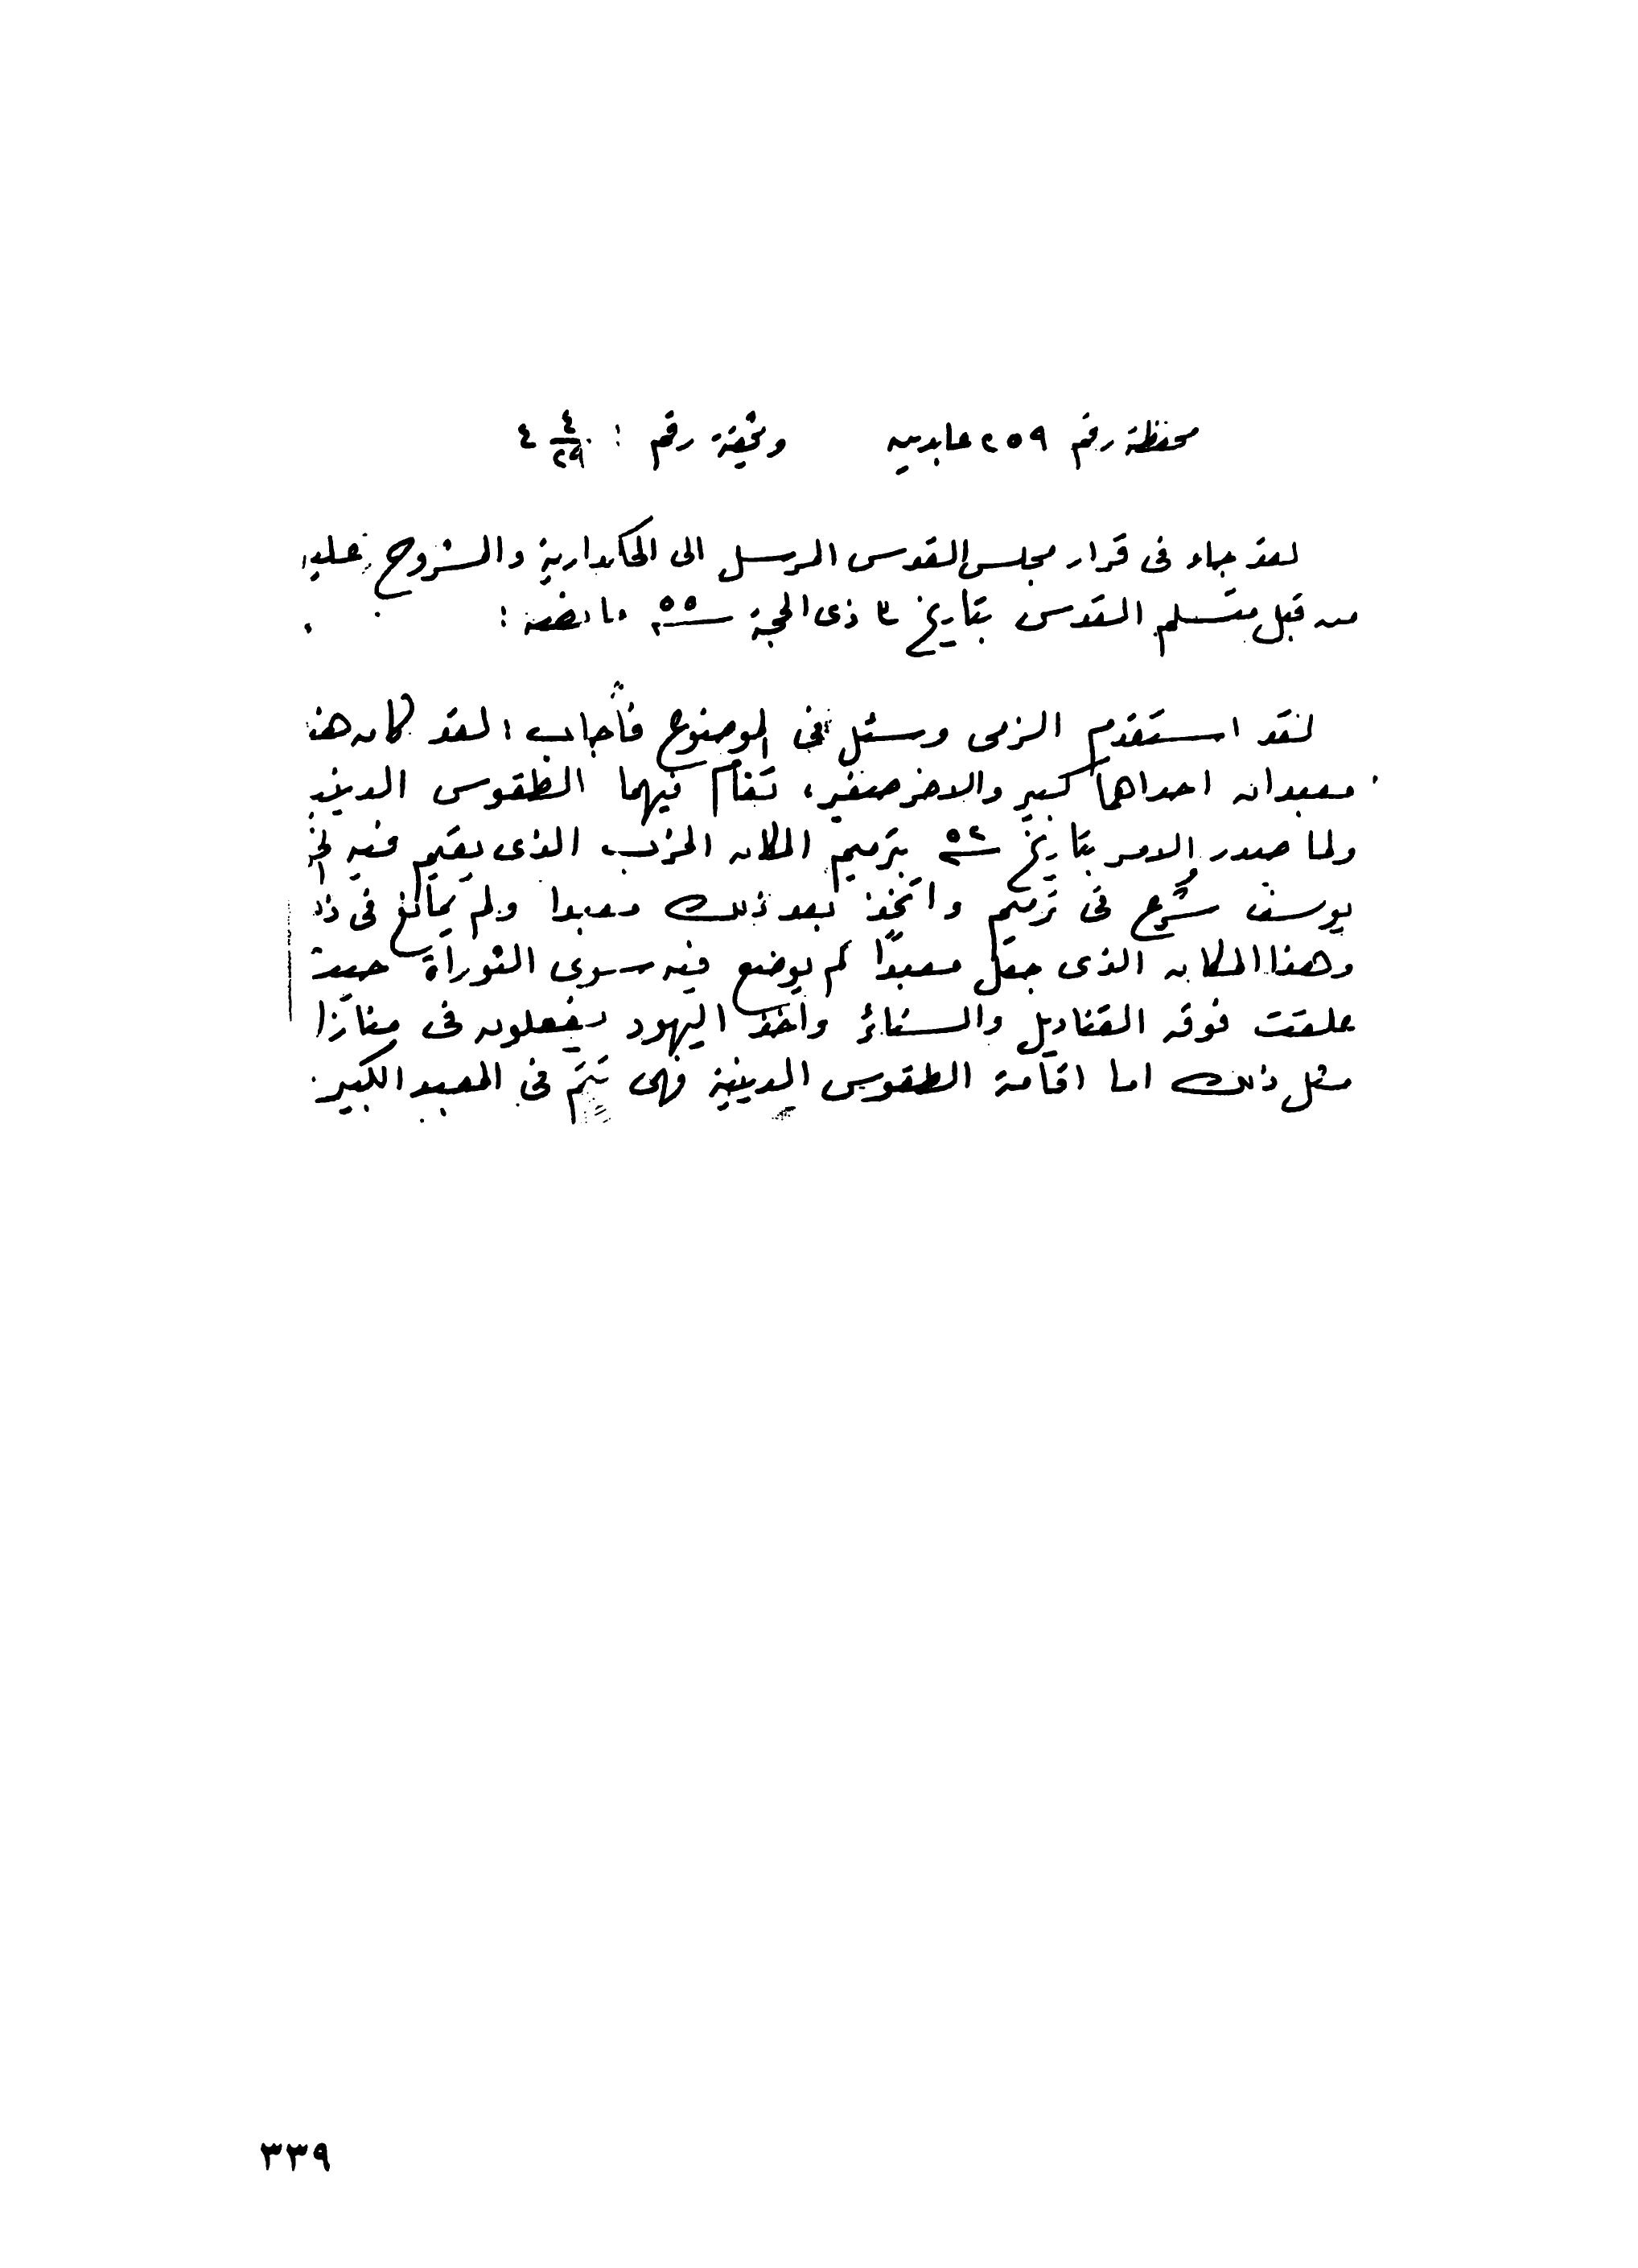 محفظة رقم ٢٥٩ عابدين وثيقة رقم : ٤/٢٩ ٤
لقد جاء فى قرار مجلس القدس المرسل الى الحكمدارية والمشروح عليه
من قبل متسلم القدس بتاريخ ٣ ذى الحجة سنة ٥٥ ما نصه :
لقد استقدم الزمى وسئل فى الموضوع فأجاب : لقد كان هنا
معبدان احداهما كبير والاخر صغير، تقام فيهما الطقوس الدينية
ولما صدر الامر بتاريخ سنة ٥٢ بترميم المكان الخرب الذى يقيم فيه
يوسف شُرع فى ترميم واتخذ بعد ذلك معبدا ولم يمانع فى
وهذا المكان الذى جعل معبدًا لم يوضع فيه سوى التوراة حيث
علقت فوقه القناديل والستائر وأخذ اليهود يفعلون فى منازل
مثل ذلك اما اقامة الطقوس الدينية فهى تتم فى المعبد الكبير.
٣٣٩